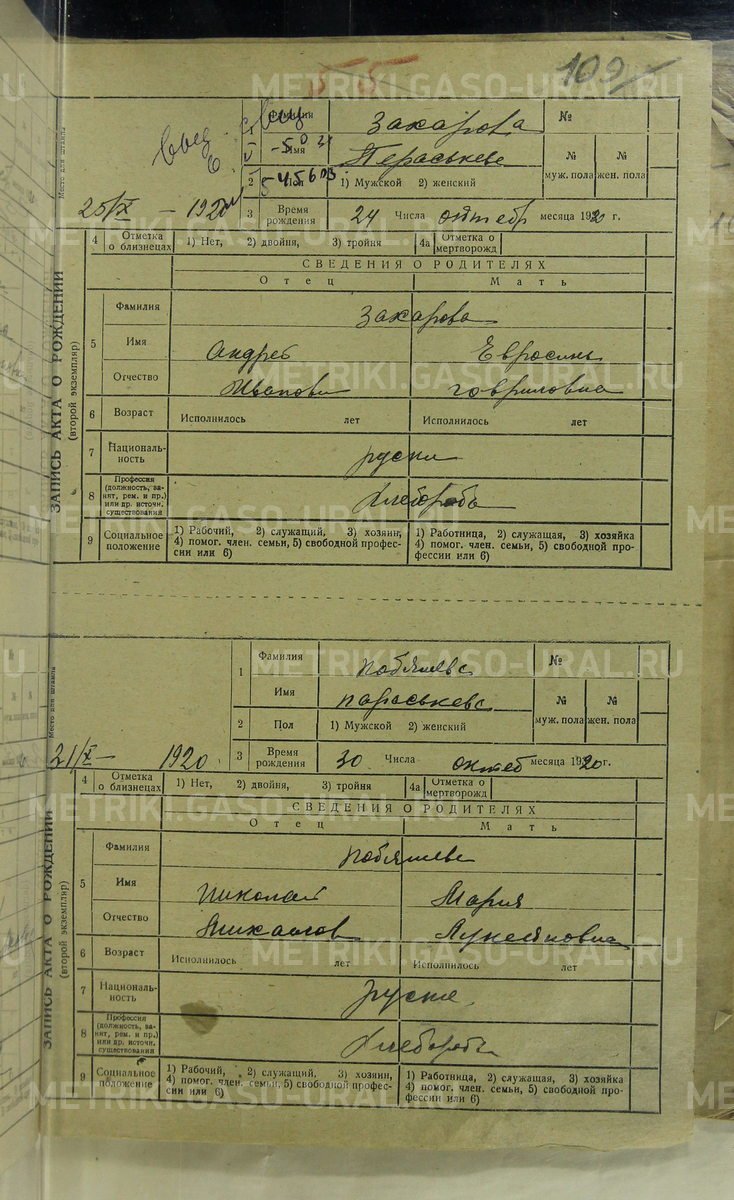 55
109
METRIKI.GASO-URAL.RU
Место для штампа
Фамилия
Захарова
№
Имя
Пераськева
№ муж. пола
№ жен. пола
2 Пол 1) Мужской 2) женский
25/X — 1920
3 Время рождения 24 Числа октебр месяца 1920 г.
ЗАПИСЬ АКТА О РОЖДЕНИИ
(второй экземпляр)
4 Отметка о близнецах 1) Нет, 2) двойня, 3) тройня 4а Отметка о мертворожд
СВЕДЕНИЯ О РОДИТЕЛЯХ
Отец Мать
5 Фамилия Захарова
Имя Андрей
Отчество Иванови гавриловна
6 Возраст Исполнилось лет Исполнилось лет
7 Националь-
ность руски
8 Профессия
(должность, за-
нят, рем. и пр.)
или др. источн.
существования
Хлебороба
9 Социальное
положение
1) Рабочий, 2) служащий, 3) хозяин,
4) помог. член. семьи, 5) свободной профес-
сии или 6)
1) Работница, 2) служащая, 3) хозяйка
4) помог. член. семьи, 5) свободной про-
фессии или 6)
METRIKI.GASO-URAL.RU
Место для штампа
1 Фамилия №
Имя параськева
№ муж. пола
№ жен. пола
2 Пол 1) Мужской 2) женский
1920
3 Время рождения 30 Числа октеб месяца 1920 г.
ЗАПИСЬ АКТА О РОЖДЕНИИ
(второй экземпляр)
4 Отметка о близнецах 1) Нет, 2) двойня, 3) тройня 4а Отметка о мертворожд
СВЕДЕНИЯ О РОДИТЕЛЯХ
Отец Мать
5 Фамилия
Имя Николай Мария
Отчество Михайлов Лукеяновна
6 Возраст Исполнилось лет Исполнилось лет
7 Националь-
ность руские
8 Профессия
(должность, за-
нят, рем. и пр.)
или др. источн.
существования
Хлеборобы
9 Социальное
положение
1) Рабочий, 2) служащий, 3) хозяин,
4) помог. член. семьи, 5) свободной профес-
сии или 6)
1) Работница, 2) служащая, 3) хозяйка
4) помог. член. семьи, 5) свободной про-
фессии или 6)